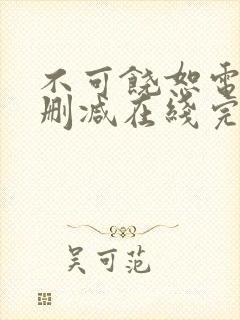 不可饶恕電
删减在綫完
吴可范